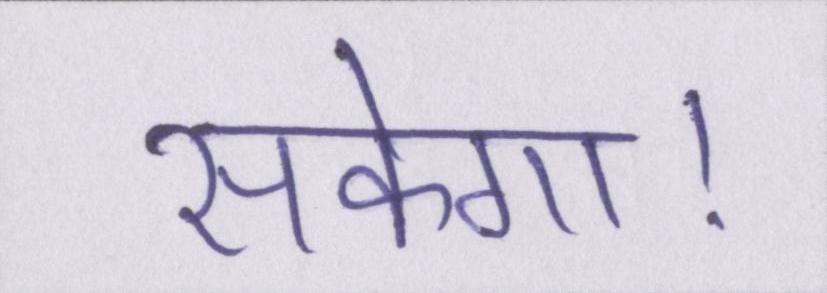 सकेगा!